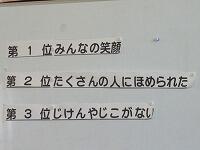 第 1 位みんなの笑顔
第 2 位たくさんの人にほめられた
第 3 位じけんやじこがない